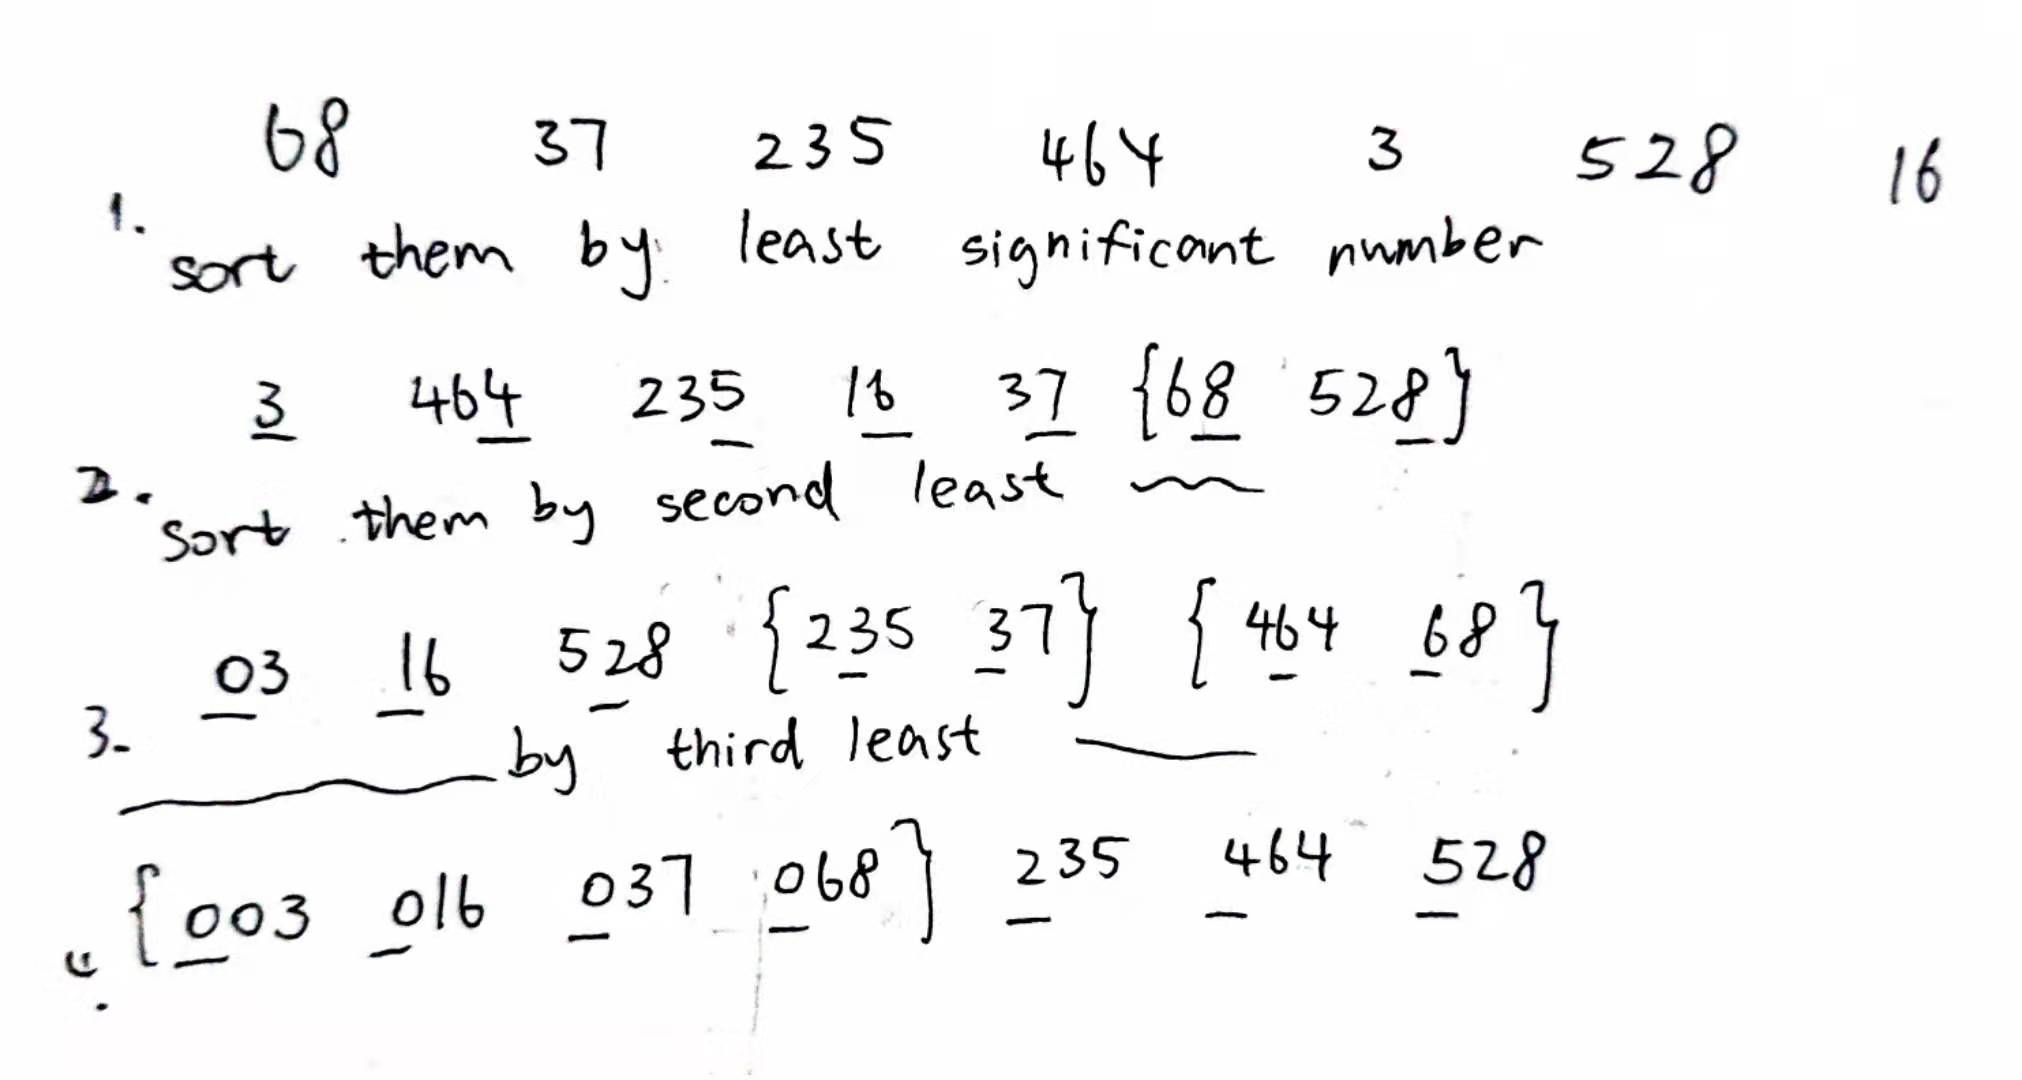 68 37 235 464 3 528 16
1. sort them by least significant number
3 464 235 16 37 {68 528}
2. sort them by second least
03 16 528 {235 37} {464 68}
3. by third least
{003 016 037 068} 235 464 528